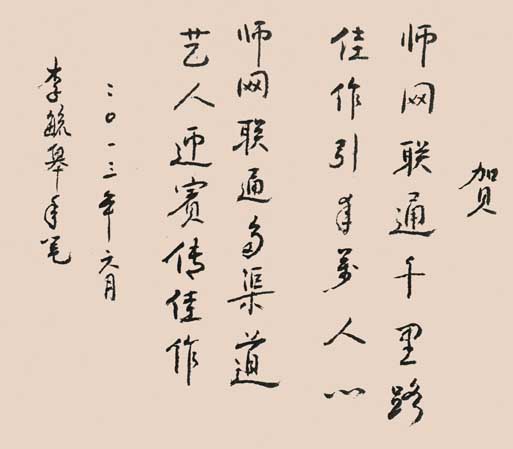 贺
师网联通千里路
佳作引来萬人心
师网联通多渠道
艺人迎賓传佳作
二〇一三年月
李毓手笔